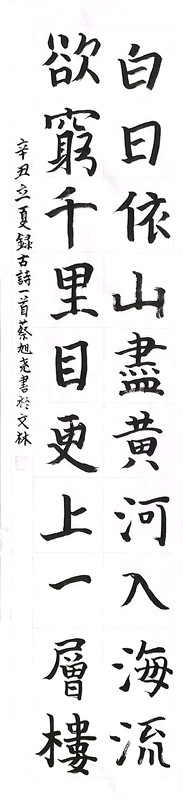 白日依山盡黃河入海流
欲窮千里目更上一層樓
辛丑立夏録古詩一首蔡旭堯書於文林